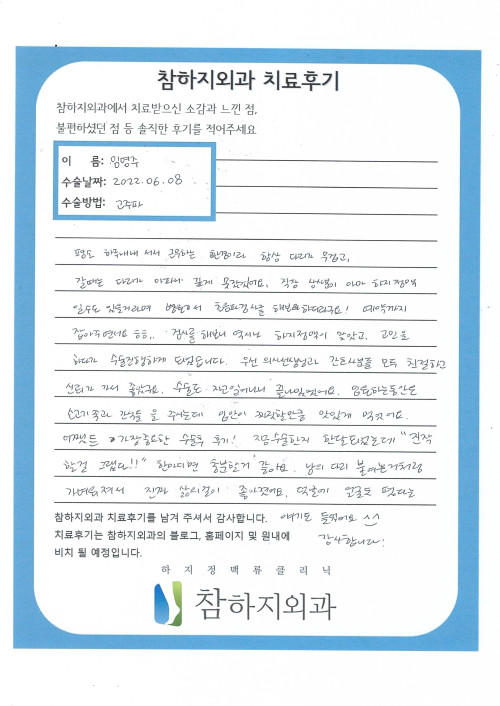 참하지외과 치료후기
참하지외과에서 치료받으신 소감과 느낀 점,
불편하셨던 점 등 솔직한 후기를 적어주세요
이 름: 임명주
수술날짜: 2022.06.08
수술방법: 고주파
평소 하루내내 서서 근무하는 환경이라 항상 다리가 무겁고,
잘때는 다리가 아파서 깊게 못잤었어요. 직장 상사분이 아마 하지정맥
일수도 있을거라며 병원가서 초음파검사를 해보라하더라구요! 예약까지
잡아주면서요 ㅎㅎ.. 검사를 해보니 역시나 하지정맥이 맞았고, 고민을
하다가 수술진행하게 되었습니다. 우선 의사선생님과 간호사분들 모두 친절하고
신뢰가 가서 좋았구요. 수술도 자고일어나니 끝나있었어요. 입원하는동안은
소고기죽과 간식들을 주시는데 입안이 찌릿할만큼 맛있게 먹었어요.
어쨌든 가장중요한 수술후 후기! 지금수술한지 한달되었는데 "진작
할걸 그랬다!!" 한마디면 충분한거 같아요. 남의 다리 붙여놓은거처럼
가벼워져서 진짜 삶의질이 좋아졌어요. 덕분에 얼굴도 폈다는
얘기도 들었어요 ^^
감사합니다!
참하지외과 치료후기를 남겨 주셔서 감사합니다.
치료후기는 참하지외과의 블로그, 홈페이지 및 원내에
비치 될 예정입니다.
하지정맥류클리닉
참하지외과